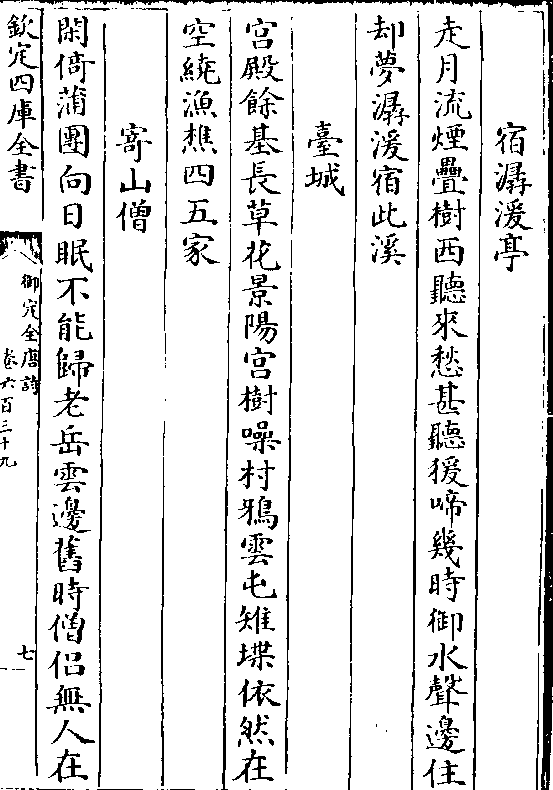 宿潺湲亭
走月流煙疊樹西聽來愁甚聽猨啼幾時御水聲邊住
却夢潺湲宿此溪
臺城
宫殿餘基長草花景陽宫樹噪村鴉雲屯雉堞依然在
空繞漁樵四五家
寄山僧
閑倚蒲團向日眠不能歸老岳雲邊舊時僧侣無人在
欽定四庫全書
御定全唐詩
卷六百三十九
七